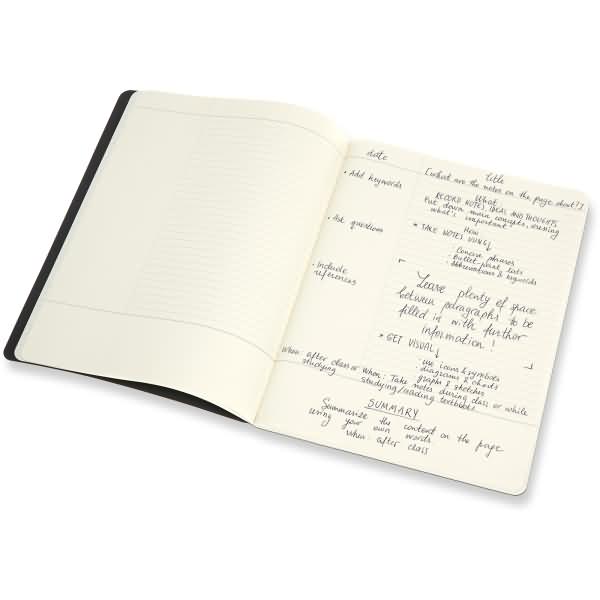 date
title
[what are the notes on the page about?]
• Add keywords
• Ask questions
• Include
references
When: after class or
studying
What
RECORD NOTES, IDEAS AND THOUGHTS
Put down main concepts, ordering
what's important
How
* TAKE NOTES USING ↓
• Concise phrases
• Bullet point lists
• Abbreviations & keywords
Leave plenty of space
between paragraphs to be
filled in with further
information!
* GET VISUAL ↓
• use icons & symbols
• diagrams & charts
• graphs & sketches
When: Take notes during class or while
studying/reading textbooks
SUMMARY
Summarize the content on the page
using your own words
when: after class